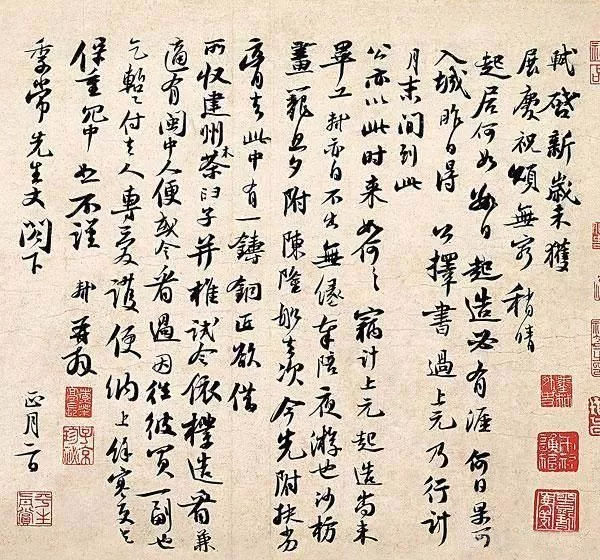 軾啓新歲未獲
展慶祝頌無窮稍晴
起居何如數日起造必有涯何日果可
入城昨日得公擇書過上元乃行計
月末間到此
公亦以此時來如何〻竊計上元起造尚未
畢工軾亦自不出無緣奉陪夜游也沙枋
畫籠旦夕附陳隆船去次今先附扶劣
膏去此中有一鑄銅匠欲借
所收建州木茶臼子并椎試令依樣造看兼
適有閩中人便或令看過因往彼買一副也
乞暫付去人專愛護便納上餘寒更乞
保重冗中恕不謹軾再拜
季常先生丈閣下
正月二日
子京珍祕
平生真賞